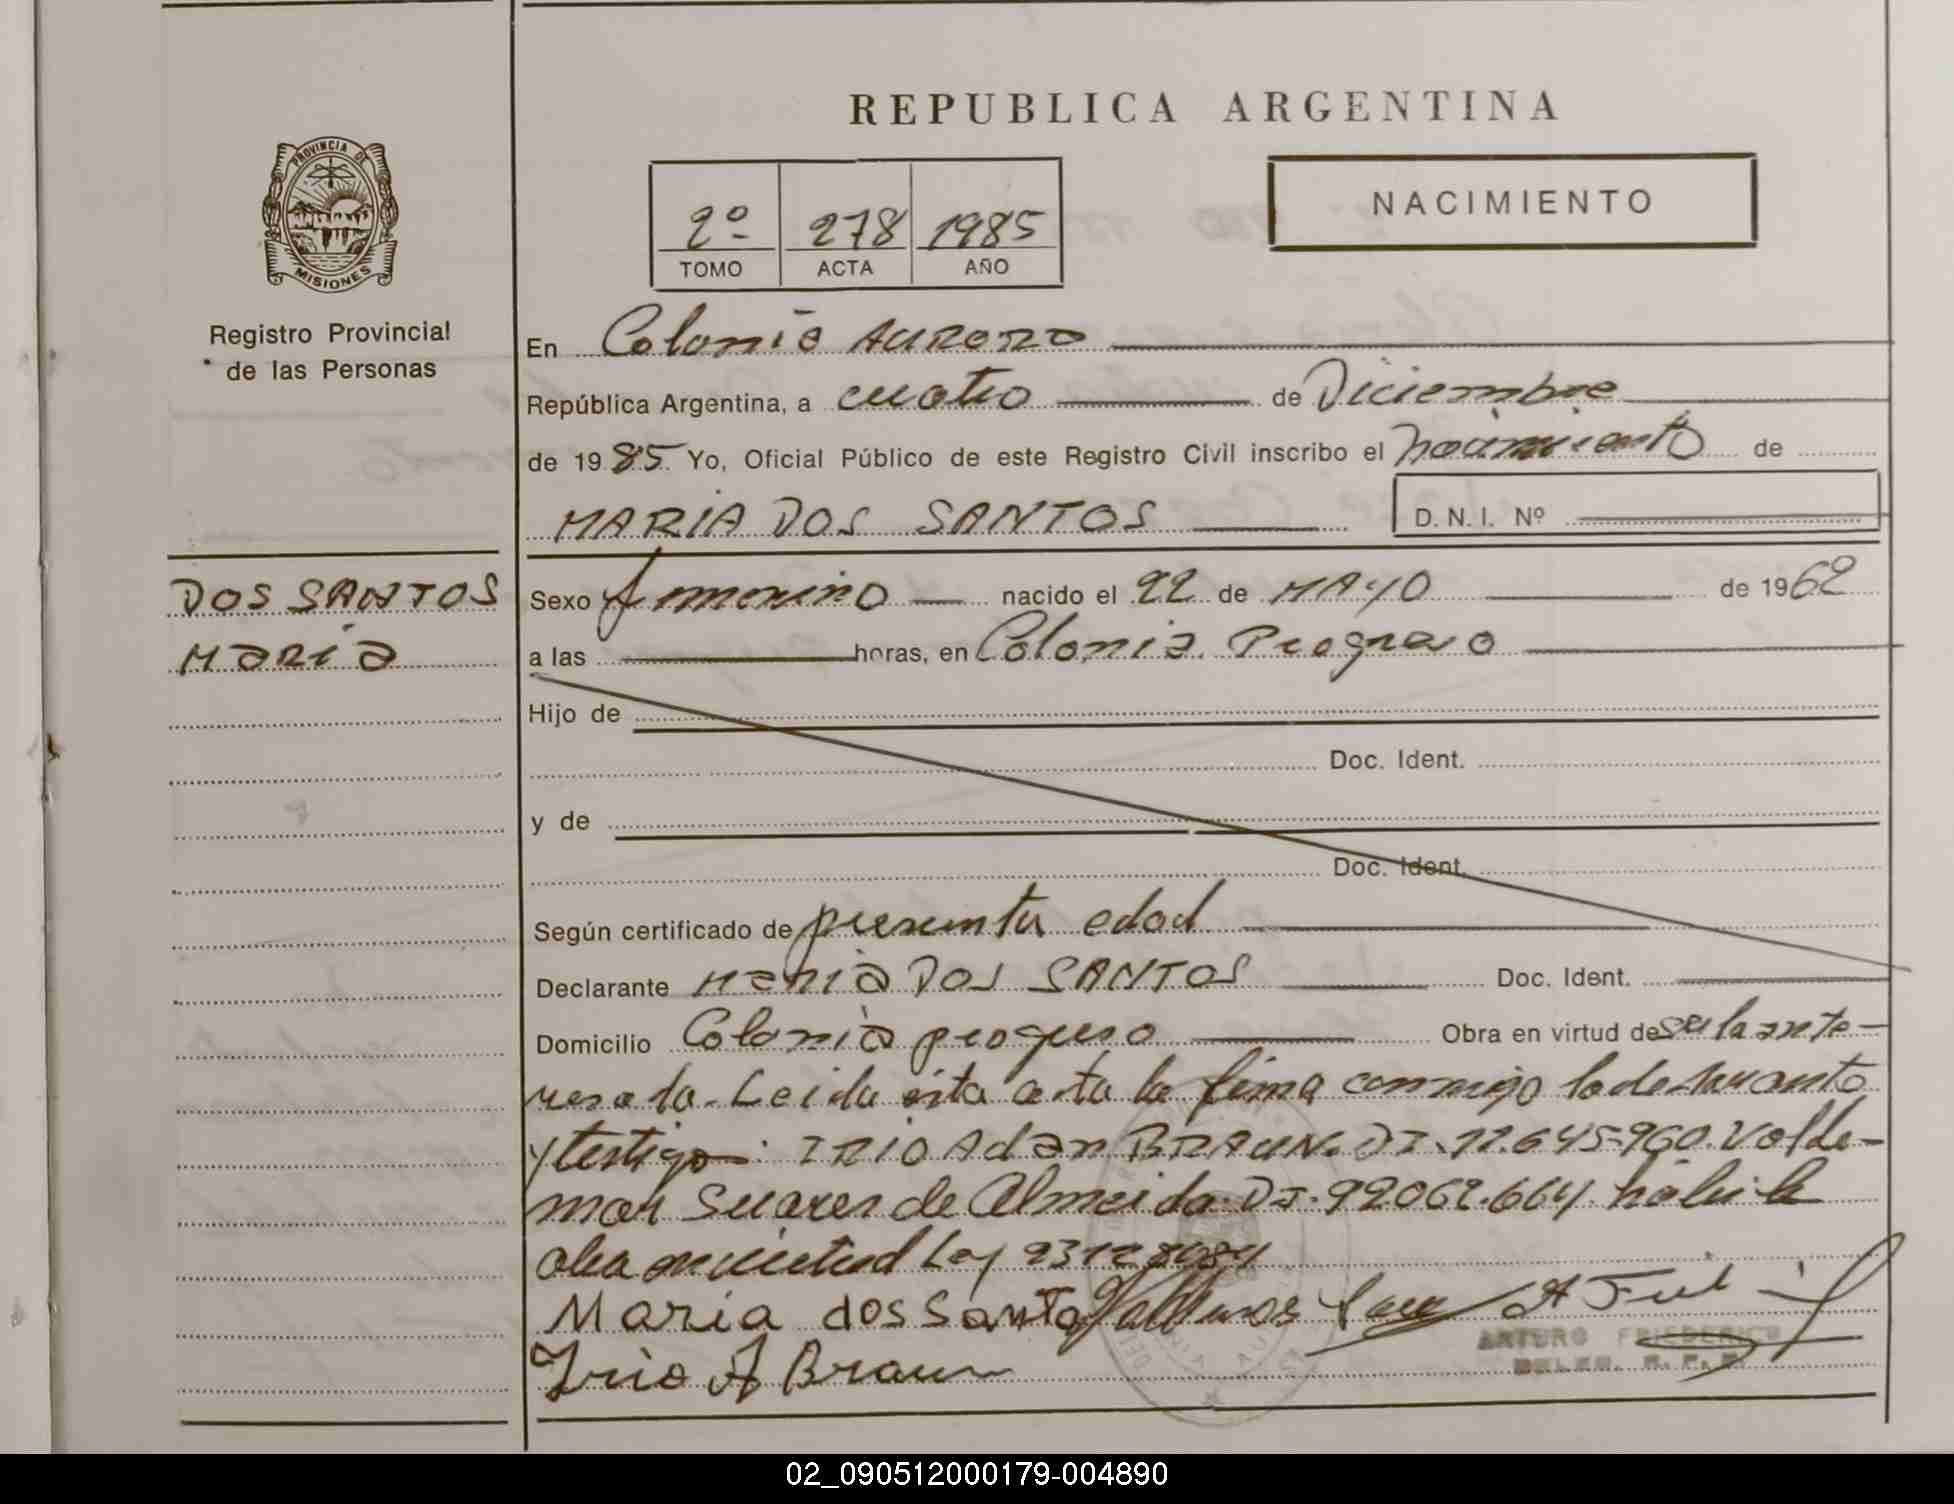 REPUBLICA ARGENTINA
PROVINCIA DE
MISIONES
Registro Provincial
de las Personas
2º 278 1985
TOMO ACTA AÑO
NACIMIENTO
En Colonia AURORA
República Argentina, a cuatro de Diciembre
de 1985 Yo, Oficial Público de este Registro Civil inscribo el nacimiento de
MARIA DOS SANTOS D. N. I. Nº
DOS SANTOS
Maria
Sexo femenino nacido el 22 de MAYO de 1962
a las horas, en Colonia Progreso
Hijo de
Doc. Ident.
y de
Doc. Ident.
Según certificado de presunta edad
Declarante Maria DOS SANTOS Doc. Ident.
Domicilio Colonia progreso Obra en virtud de su la ante-
resada. Leida esta acta la firma conmigo la declarante
y testigo: IRIO Adan BRAUN. DI. 12.645.960. Valde-
mar Suares de Almeida. DI. 92062.664
obra en virtud Ley
Maria dos Santo
Irio A Braun
ARTURO FRIEDERICH